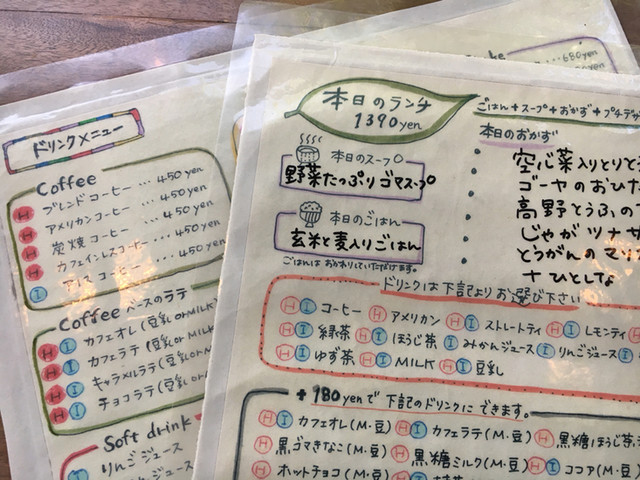 ドリンクメニュー
Coffee
H ブレンドコーヒー … 450yen
H アメリカンコーヒー … 450yen
H 炭焼コーヒー … 450yen
H カフェインレスコーヒー … 450yen
I アイスコーヒー … 450yen
Coffee ベースのラテ
H I カフェオレ(豆乳orMILK)
H I カフェラテ(豆乳orMILK)
H I キャラメルラテ(豆乳or
H I チョコラテ(豆乳or
Soft drink
りんごジュース
ジュース
680yen
本日のランチ
1390yen
ごはん+スープ+おかず+プチデザ
本日のスープ
野菜たっぷりゴマスープ
本日のごはん
玄米と麦入りごはん
ごはんはおかわりしていただけます。
本日のおかず
・空心菜入りとりと
・ゴーヤのおひた
・高野とうふの
・じゃがツナサ
・とうがんのマリ
・十ひとしな
ドリンクは下記よりお選び下さい
H I コーヒー H アメリカン H I ストレートティ H I レモンティ
H I 緑茶 H I ほうじ茶 I みかんジュース I りんごジュース I
H I ゆず茶 H I MILK H I 豆乳
+180yenで下記のドリンクにできます。
H I カフェオレ(M・豆) H I カフェラテ(M・豆) H 黒糖ほうじ茶
H 黒ゴマきなこ(M・豆) H 黒糖ミルク(M・豆) H I ココア(M・豆)
H ホットチョコ(M・豆)